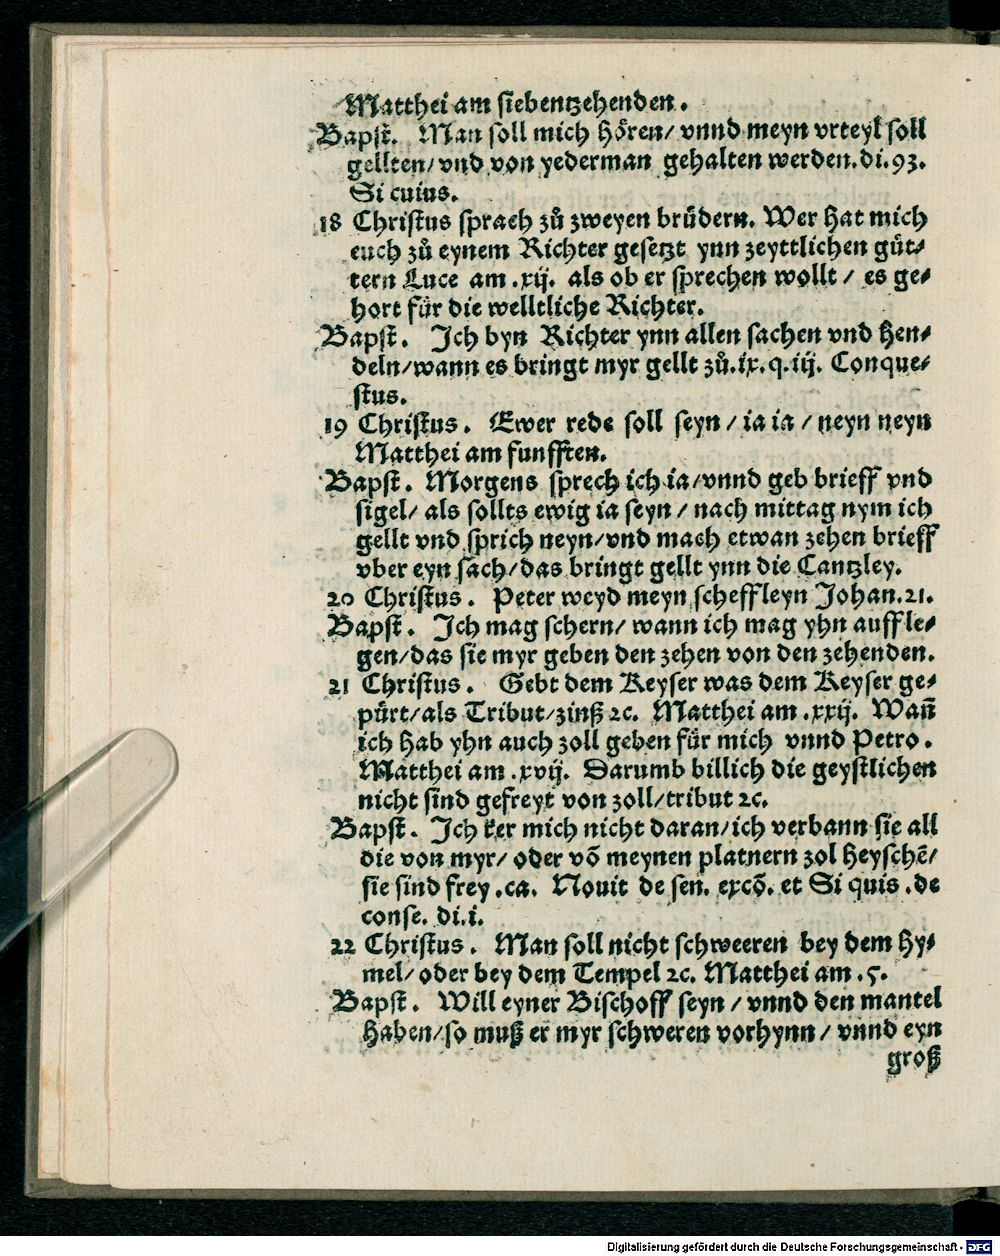 Matthei am siebentzehenden.
Bapst. Man soll mich hoͤren/ vnnd meyn vrteyl soll
gellten/ vnd von yederman gehalten werden. di. 93.
Si cuius.
18 Christus sprach zů zweyen bruͤdern. Wer hat mich
euch zů eynem Richter gesetzt ynn zeyttlichen guͤt⸗
tern Luce am .xij. als ob er sprechen wollt / es ge⸗
hort fuͤr die welltliche Richter.
Bapst. Ich byn Richter ynn allen sachen vnd hen⸗
deln/wann es bringt myr gellt zů.ix.q.iij. Conque⸗
stus.
19 Christus. Ewer rede soll seyn / ia ia / neyn neyn
Matthei am funfften.
Bapst. Morgens sprech ich ia/vnnd geb brieff vnd
sigel/ als sollts ewig ia seyn / nach mittag nym ich
gellt vnd sprich neyn/vnd mach etwan zehen brieff
vber eyn sach/das bringt gellt ynn die Cantzley.
20 Christus. Peter weyd meyn scheffleyn Johan.21.
Bapst. Ich mag schern/ wann ich mag yhn auffle⸗
gen/das sie myr geben den zehen von den zehenden.
21 Christus. Gebt dem Keyser was dem Keyser ge⸗
puͤrt/als Tribut/zinß ꝛc. Matthei am .xxij. Wañ
ich hab yhn auch zoll geben fuͤr mich vnnd Petro.
Matthei am .xvij. Darumb billich die geystlichen
nicht sind gefreyt von zoll/tribut ꝛc.
Bapst. Ich ker mich nicht daran/ich verbann sie all
die von myr/ oder võ meynen platnern zol heyschẽ/
sie sind frey .ca. Nouit de sen. excõ. et Si quis .de
conse. di.i.
22 Christus. Man soll nicht schweeren bey dem hy⸗
mel/ oder bey dem Tempel ꝛc. Matthei am .5.
Bapst. Will eyner Bischoff seyn / vnnd den mantel
haben/so muß er myr schweren vorhynn/ vnnd eyn
groß
Digitalisierung gefördert durch die Deutsche Forschungsgemeinschaft - DFG